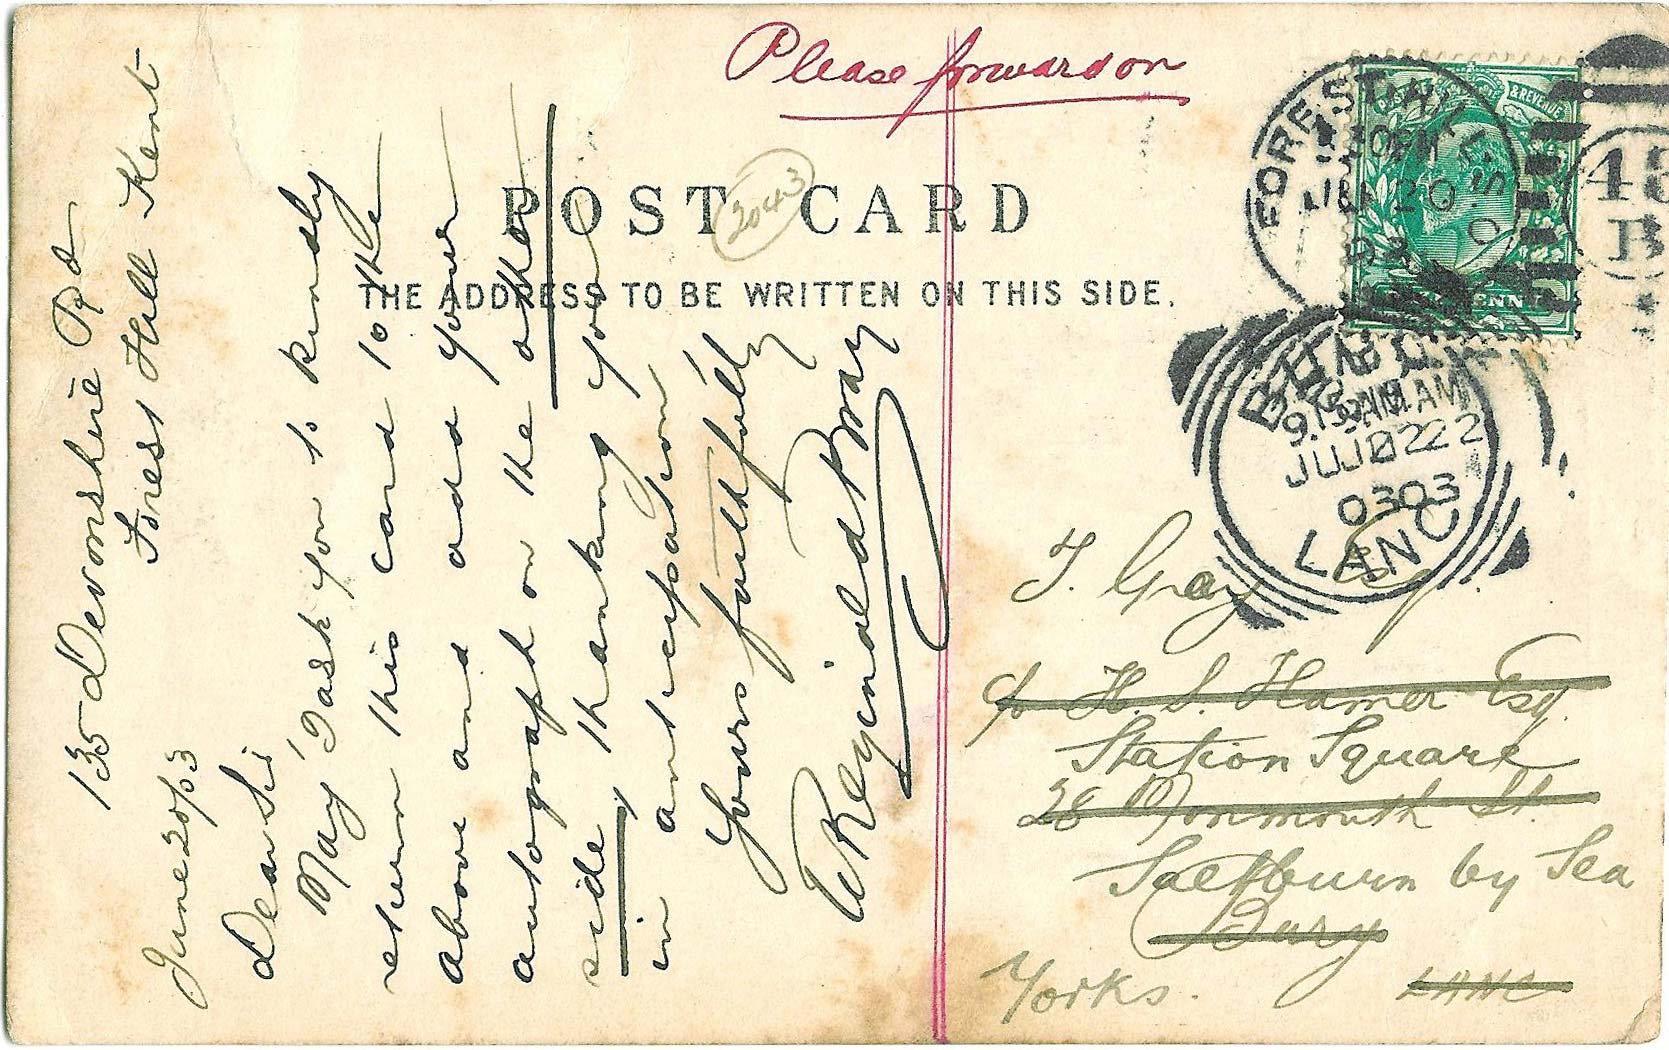 Please forward on
POST CARD
2043
THE ADDRESS TO BE WRITTEN ON THIS SIDE.
135 Devonshire Rd
Forest Hill Kent
June 20/03
Dear Sir
May I ask you to kindly
return this card to the
above and add your
autograph on the other
side, thanking you
in anticipation
Yours faithfully
W Reginald Bray
POSTAGE & REVENUE
FOREST HILL S.O
JU 20
03
9.15 AM
JU 22
03
LANC
T. Gray Esq.
c/o H. S. Hamer Esq.
Station Square
28 Monmouth St.
Saltburn by Sea
Bury
Yorks.
LANC